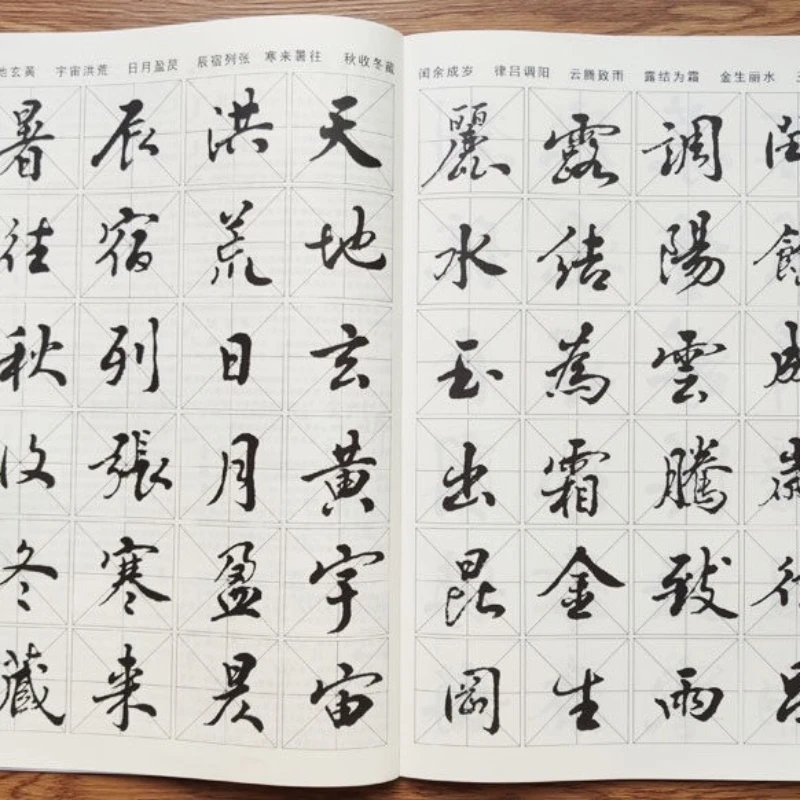 地玄黄 宇宙洪荒 日月盈昃 辰宿列张 寒来暑往 秋收冬藏
天地玄黄宇宙
洪荒日月盈昃
辰宿列張寒来
暑往秋收冬藏
闰余成岁 律吕调阳 云腾致雨 露结为霜 金生丽水
閏餘成歲律吕
調陽雲騰致雨
露結為霜金生
麗水玉出昆岡